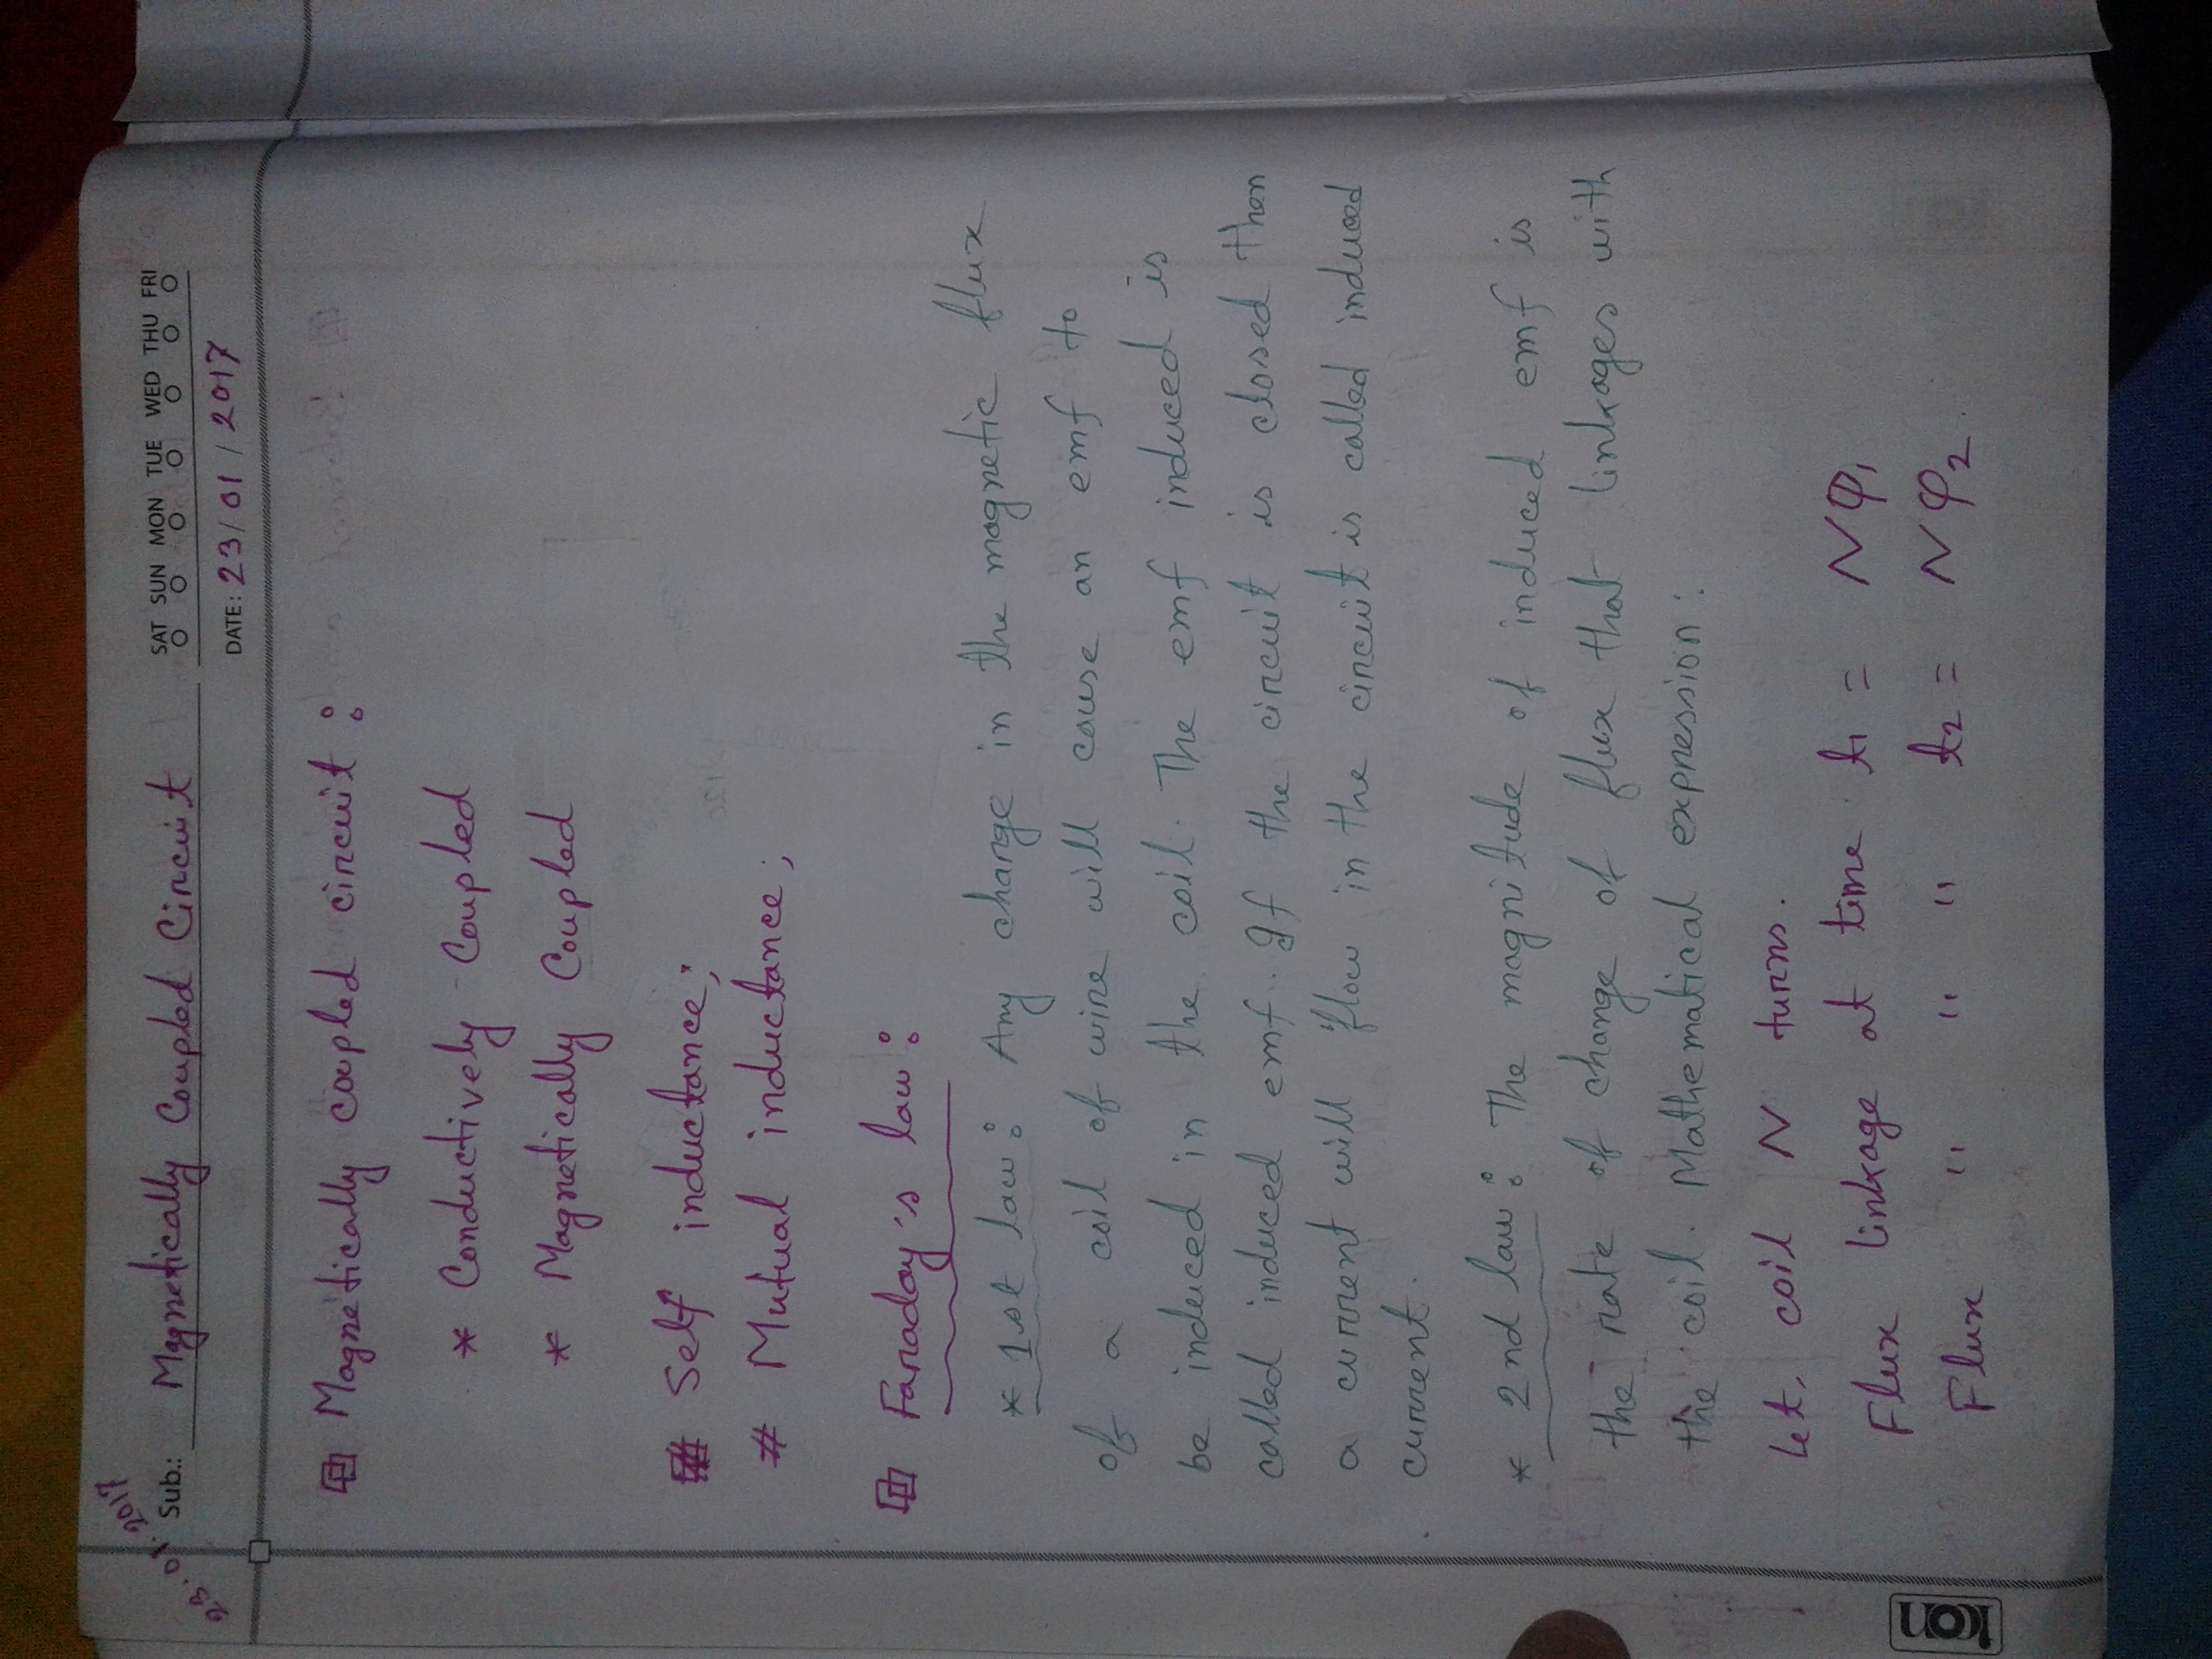 23.01.2017
Sub.: Magnetically Coupled Circuit
SAT SUN MON TUE WED THU FRI
DATE: 23/01/2017
Magnetically coupled circuit:
* Conductively Coupled
* Magnetically Coupled
# Self inductance;
# Mutual inductance;
Faraday's law:
* 1st law: Any change in the magnetic flux
of a coil of wire will cause an emf to
be induced in the coil. The emf induced is
called induced emf. If the circuit is closed then
a current will flow in the circuit is called induced
current.
* 2nd law: The magnitude of induced emf is
the rate of change of flux that linkages with
the coil. Mathematical expression:
Let, coil N turns.
Flux linkage at time t1 = Nφ1
Flux " " " t2 = Nφ2.
ion